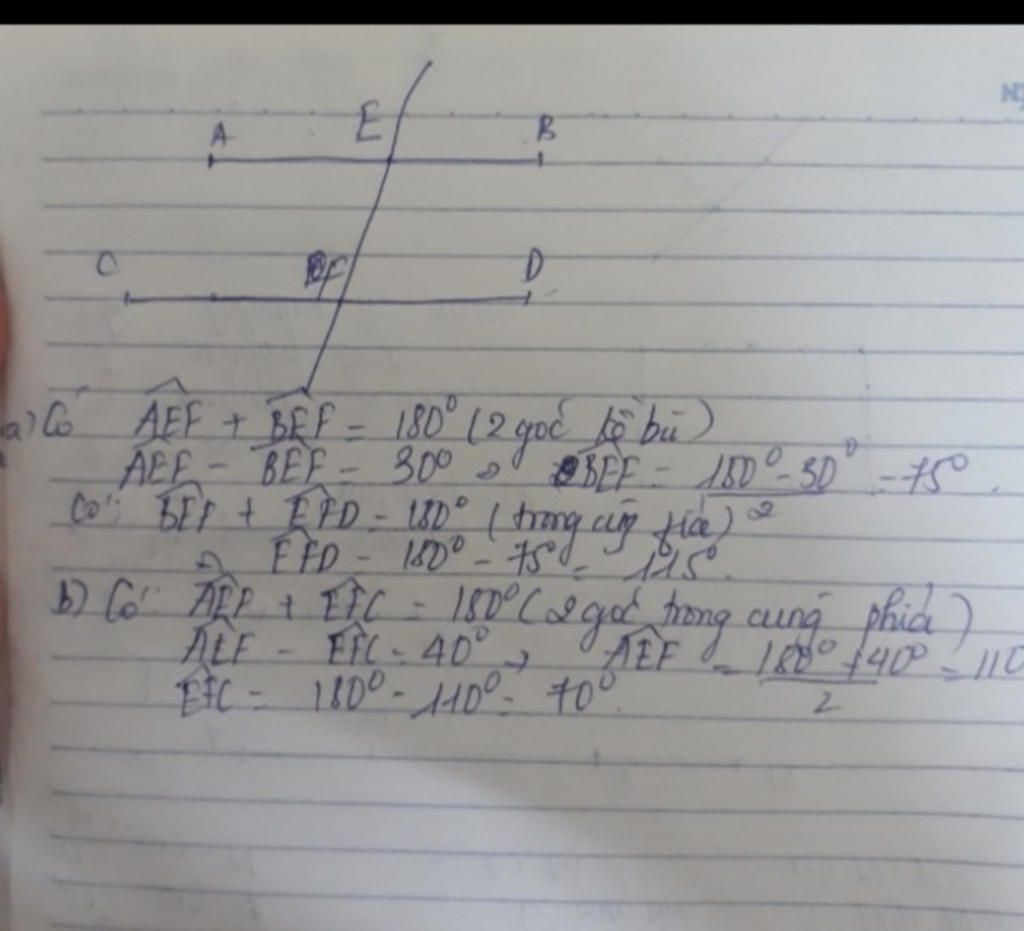 A E B
C F D
a) Có AEF + BEF = 180° (2 góc kề bù)
AEF - BEF = 30° → BEF = 180° - 30° / 2 = 75°.
Có: BEF + EFD = 180° (trong cùng phía)
→ EFD = 180° - 75° = 115°.
b) Có: AEF + EFC = 180° (2 góc trong cùng phía)
AEF - EFC = 40° → AEF = 180° + 40° / 2 = 110
EFC = 180° - 110° = 70°.